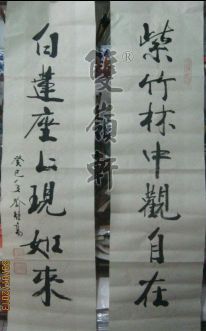 紫竹林中觀自在
白蓮座上現如來
雙嶺軒®